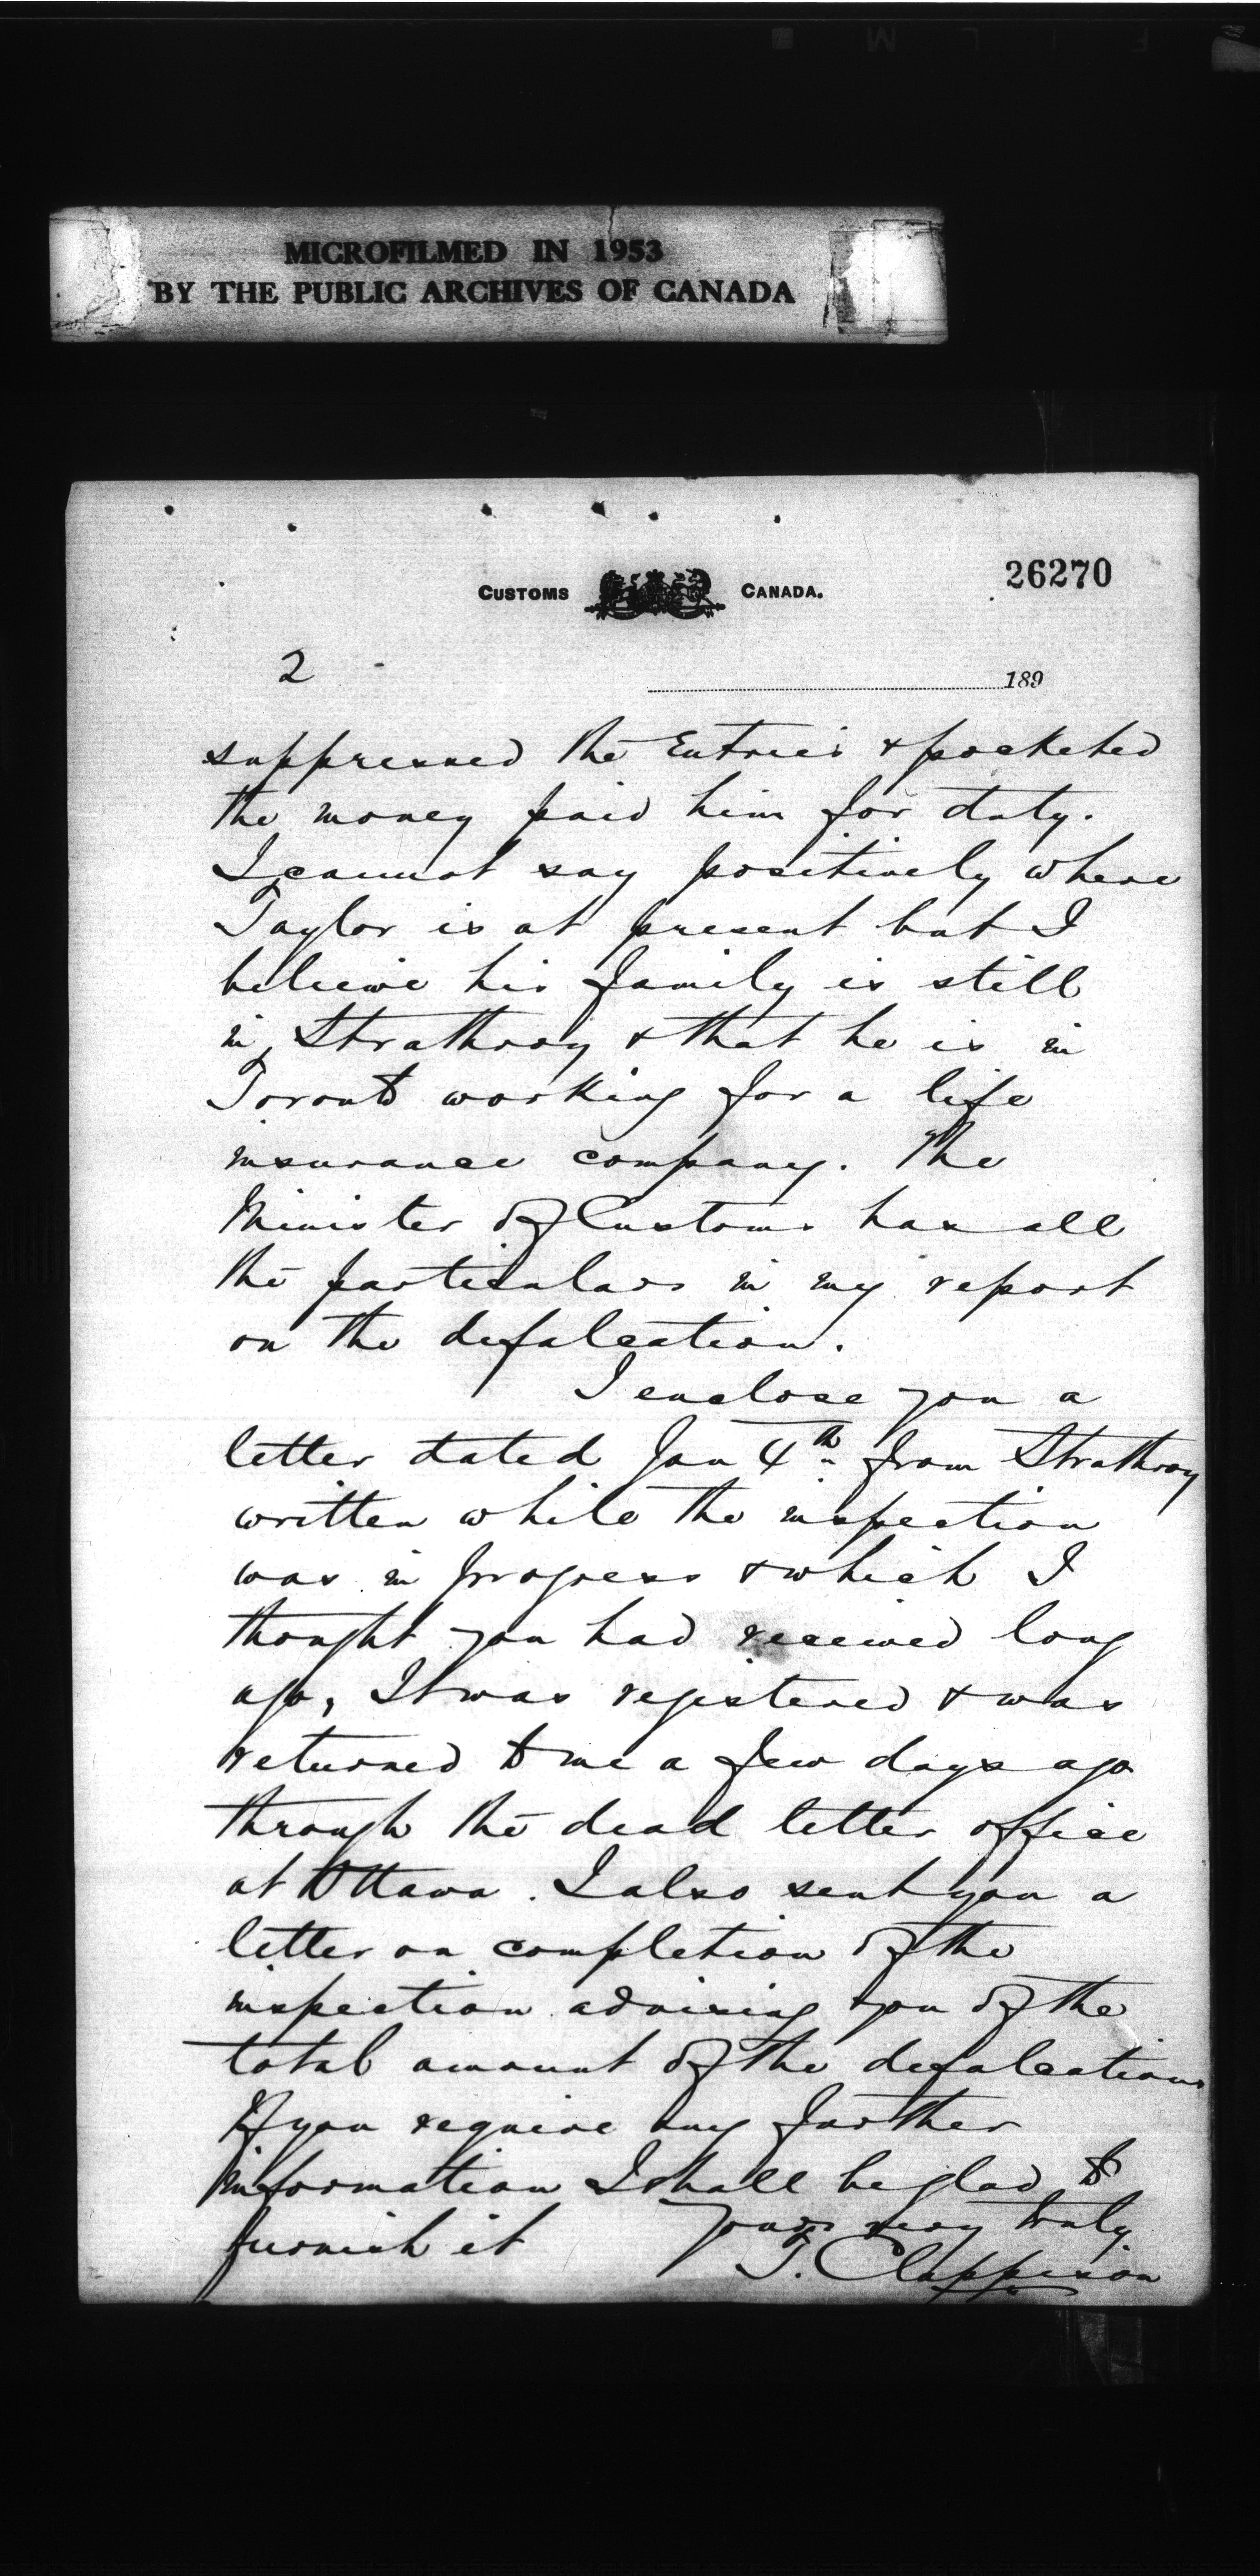 MICROFILMED IN 1953
BY THE PUBLIC ARCHIVES OF CANADA
26270
CUSTOMS CANADA.
2 -
189
suppressed the Entries & pocketed
the money paid him for duty.
I cannot say positively where
Taylor is at present but I
believe his family is still
in Strathroy & that he is in
Toronto working for a life
insurance company. The
Minister of Customs has all
the particulars in my report
on the defalcation.
I enclose you a
letter dated Jan 4th from Strathroy
written while the inspection
was in progress & which I
thought you had received long
ago, It was registered & was
returned to me a few days ago
through the dead letter office
at Ottawa. I also sent you a
letter on completion of the
inspection advising you of the
total amount of the defalcations
If you require any further
information I shall be glad to
furnish it
Yours very truly
T. Clappison